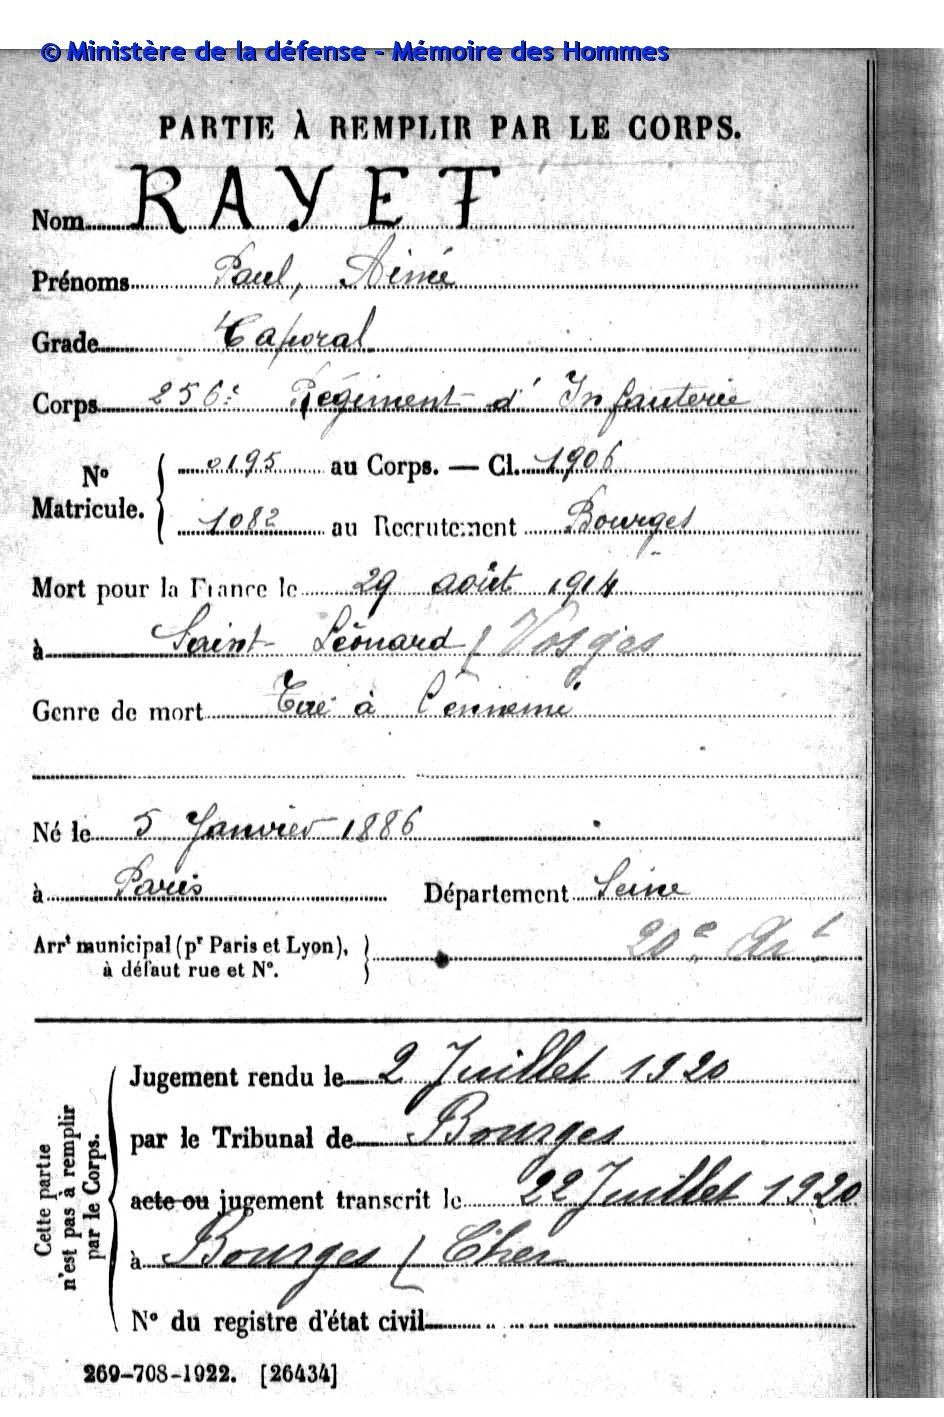 © Ministère de la défense - Mémoire des Hommes
PARTIE À REMPLIR PAR LE CORPS.
Nom RAYET
Prénoms Paul, Aimé
Grade Caporal
Corps 256e Régiment d'Infanterie
No Matricule. { 0195 au Corps. — Cl. 1906
1082 au Recrutement Bourges
Mort pour la France le 29 août 1914
à Saint Léonard / Vosges
Genre de mort Tué à l'ennemi
Né le 5 Janvier 1886
à Paris Département Seine
Arrt municipal (pr Paris et Lyon), à défaut rue et No. } 20e Art
Cette partie n'est pas à remplir par le Corps.
Jugement rendu le 2 Juillet 1920
par le Tribunal de Bourges
acte ou jugement transcrit le 22 Juillet 1920
à Bourges / Cher
No du registre d'état civil
269-708-1922. [26434]